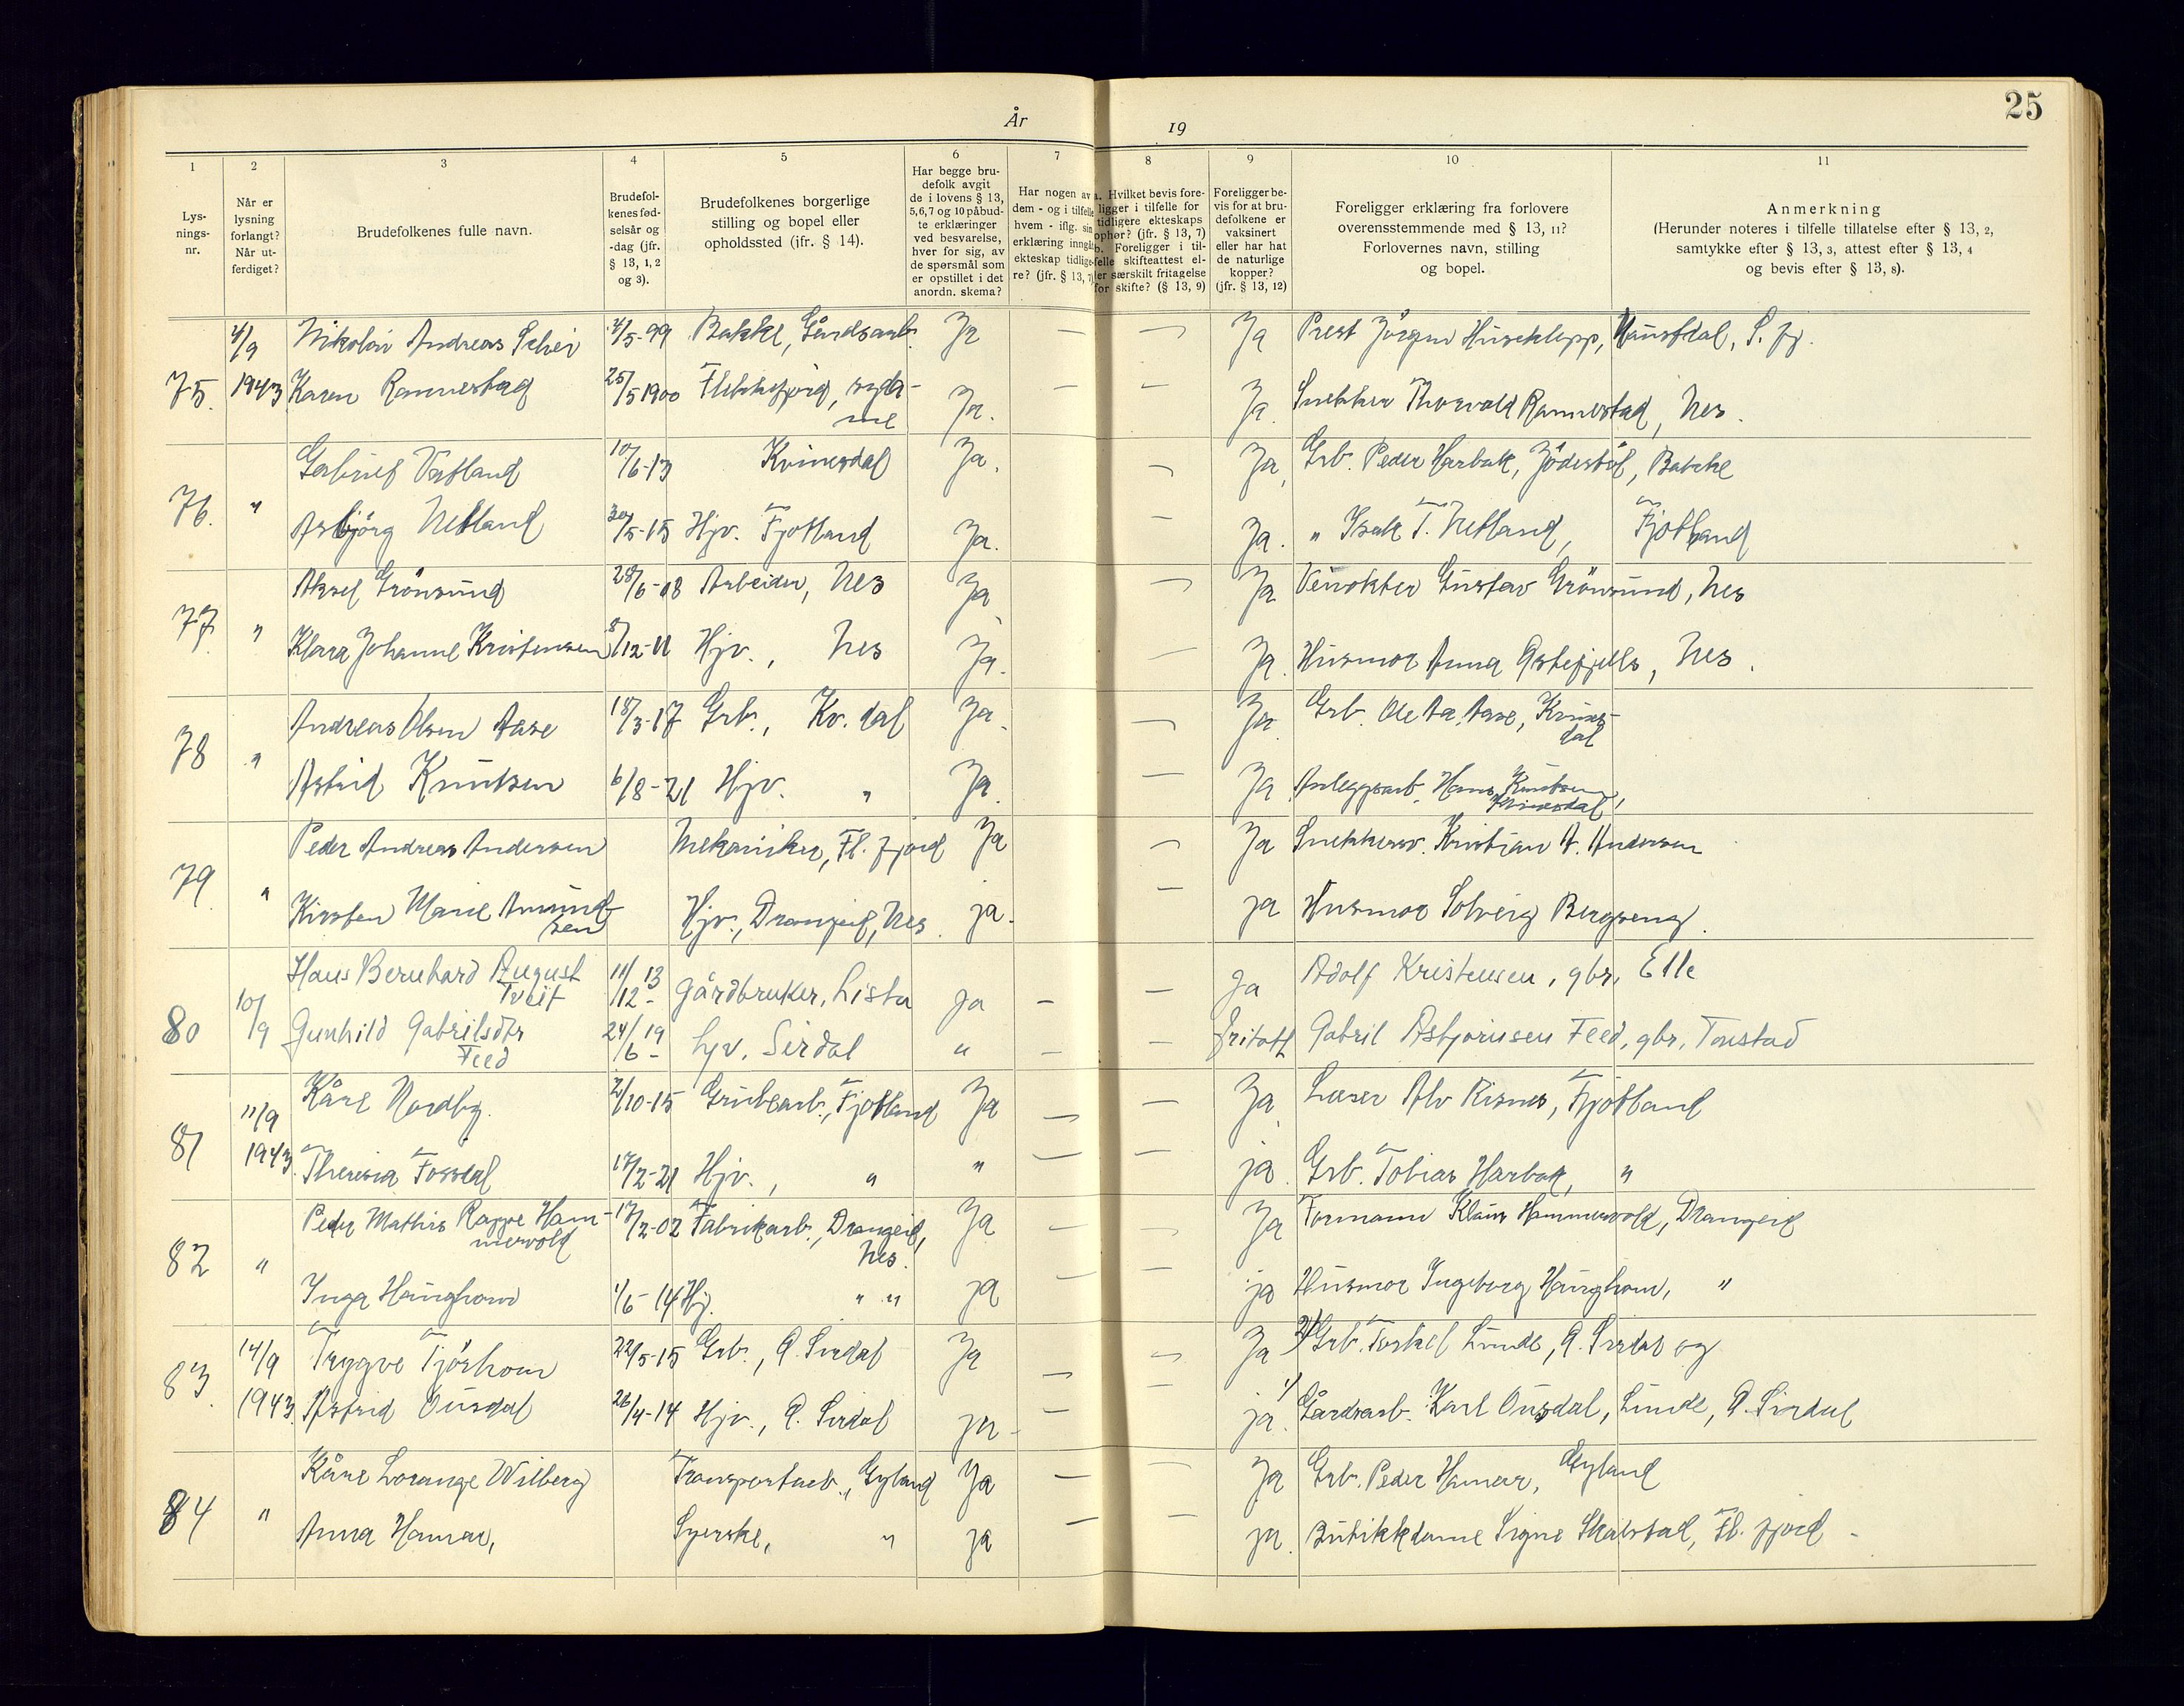 År 19
25
1 2 3 4 5 6 7 8 9 10 11
Lys-
nings-
nr.
Når er
lysning
forlangt?
Når ut-
ferdiget?
Brudefolkenes fulle navn.
Brudefol-
kenes fød-
selsår og
-dag (jfr.
§ 13, 1, 2
og 3).
Brudefolkenes borgerlige
stilling og bopel eller
opholdssted (jfr. § 14).
Har begge bru-
defolk avgit
de i lovens § 13,
5, 6, 7 og 10 påbud-
te erklæringer
ved besvarelse,
hver for sig, av
de spørsmål som
er opstillet i det
anordn. skema?
Har nogen av
dem - og i tilfelle
hvem - iflg. sin
erklæring inngått
ekteskap tidlige-
re? (jfr. § 13, 7)
a. Hvilket bevis fore-
ligger i tilfelle for
tidligere ekteskaps
ophør? (jfr. § 13, 7)
b. Foreligger i til-
felle skifteattest el-
ler særskilt fritagelse
for skifte? (§ 13, 9)
Foreligger be-
vis for at bru-
defolkene er
vaksinert
eller har hat
de naturlige
kopper?
(jfr. § 13, 12)
Foreligger erklæring fra forlovere
overensstemmende med § 13, 11?
Forlovernes navn, stilling
og bopel.
Anmerkning
(Herunder noteres i tilfelle tillatelse efter § 13, 2,
samtykke efter § 13, 3, attest efter § 13, 4
og bevis efter § 13, 8).
4/9 Nikolai Andreas Schei 4/5-99 Bakke, Gårdsarb. Ja — — Ja Prest Jörgen Huseklepp, S. fj.
75. 1943 Karen Rannestad 25/5 1900 Flekkefjord, syda-
me Ja. — — Ja. Snekker Thorvald Rannestad, Nes.
Gabriel Vatland 10/6-13 Kvinesdal Ja. — Ja, Grb. Peder Harbak, Jödestöl, Bakke
76. " Asbjörg Netland 30/5-15 Hjv. Fjotland Ja. — Ja. " Isak T. Netland, Fjotland
Aksel Grönsund 28/6-08 Arbeider, Nes Ja — Ja Veivokter Gustav Grönsund, Nes
77. " Klara Johanne Kristensen 8/12-11 Hjv., Nes Ja. — Ja. Husmor Anna Østefjells, Nes.
Andreas Olsen Aase 18/3-17 Grb., Kv. dal Ja. — Ja. Grb. Ole Aa. Aase, Kvines-
dal
78 " Astrid Knutsen 6/8-21 Hjv. " Ja. — Ja Anleggsarb. Hans Knutsen,
Kvinesdal
Peder Andreas Andersen Mekaniker, Fl. fjord Ja — Ja Snekkersv. Kristian A. Andersen
79. " Kirsten Marie Amund-
sen Hjv., Drangeid, Nes. ja. — ja Husmor Solveig Bergseng.
Hans Bernhard August
Tveit 11/12-13 gårdbruker, Lista ja — — ja Adolf Kristensen, gbr, Elle
80 10/9 Gunhild Gabrielsdtr
Feed 24/6-19 hjv. Sirdal " — — fritatt Gabriel Asbjørnsen Feed, gbr, Tonstad
11/9 Kåre Nordby. 2/10-15 Grubearb., Fjotland Ja — — Ja. Lærer Alv Risnes, Fjotland
81 1943. Theresia Fossdal 17/2-21 Hjv., " " — — ja. Grb. Tobias Harbak, "
Peder Mathis Rappe Ham-
mervold 17/2-02 Fabrikarb., Drangeid,
Nes. Ja — — Ja Formann Klaus Hammervold, Drangeid
82 " Inga Haughom 1/6-14 Hj. " " ja — — ja Husmor Ingeborg Haughom, "
14/9 Trygve Tjörhom 22/5-15 Grb., Ø. Sirdal Ja — — Ja 2) Grb. Torkel Lunde, Ø. Sirdal og
83. 1943. Astrid Ousdal 26/4-14 Hjv., Ø. Sirdal ja — — ja. 1) Gårdsarb. Karl Ousdal, Lunde, Ø. Sirdal
Kåre Lorange Wilberg Transportarb., Gyland Ja — — Ja Grb. Peder Hamar, Gyland
84 " Anna Hamar, Syerske, " ja — — ja. Butikkdame Signe Skalstad, Fl. fjord